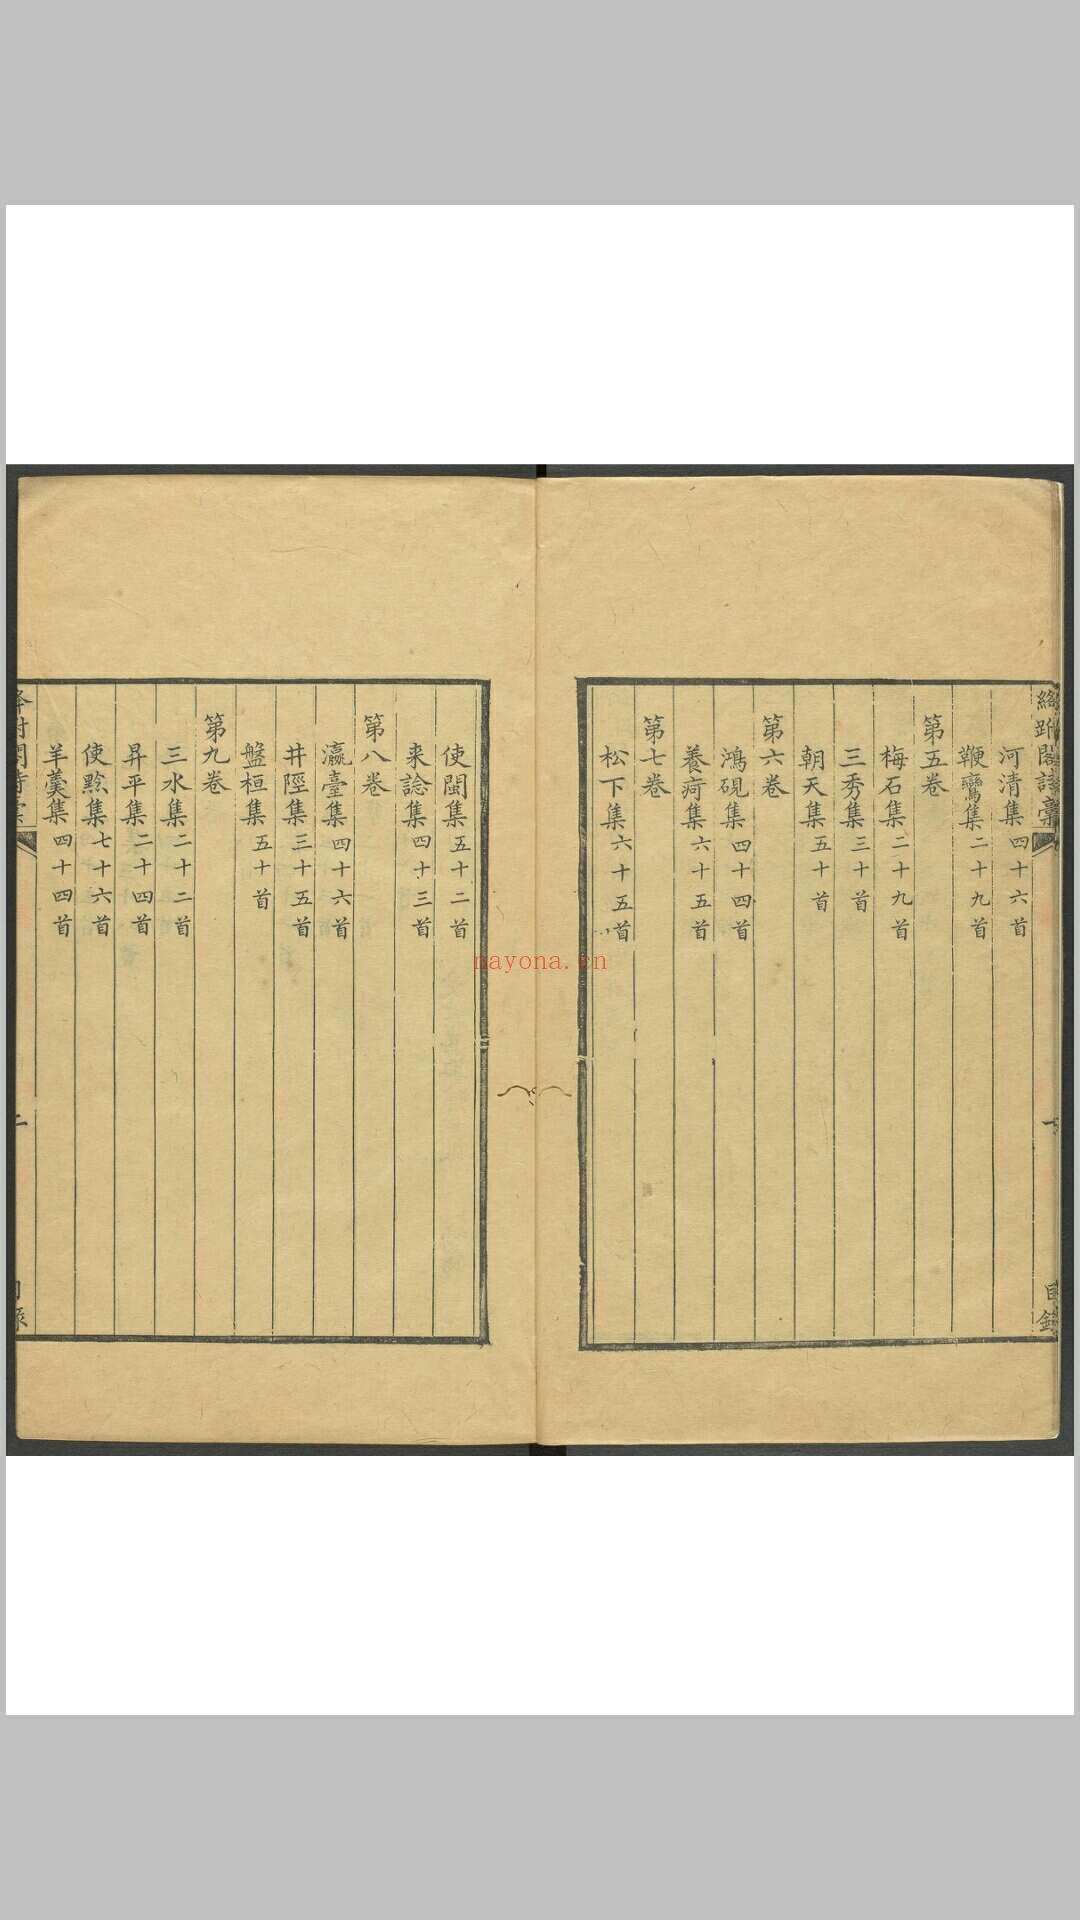 絳跗閣詩藁
河清集四十六首
鞭鸞集二十九首
第五卷
梅石集二十九首
三秀集三十首
朝天集五十首
第六卷
鴻硯集四十四首
養疴集六十五首
第七卷
松下集六十五首
目錄
使閩集五十二首
来諗集四十三首
第八卷
瀛臺集四十六首
井陘集三十五首
盤桓集五十首
第九卷
三水集二十二首
昇平集二十四首
使黔集七十六首
羊羹集四十四首
nayona.cn